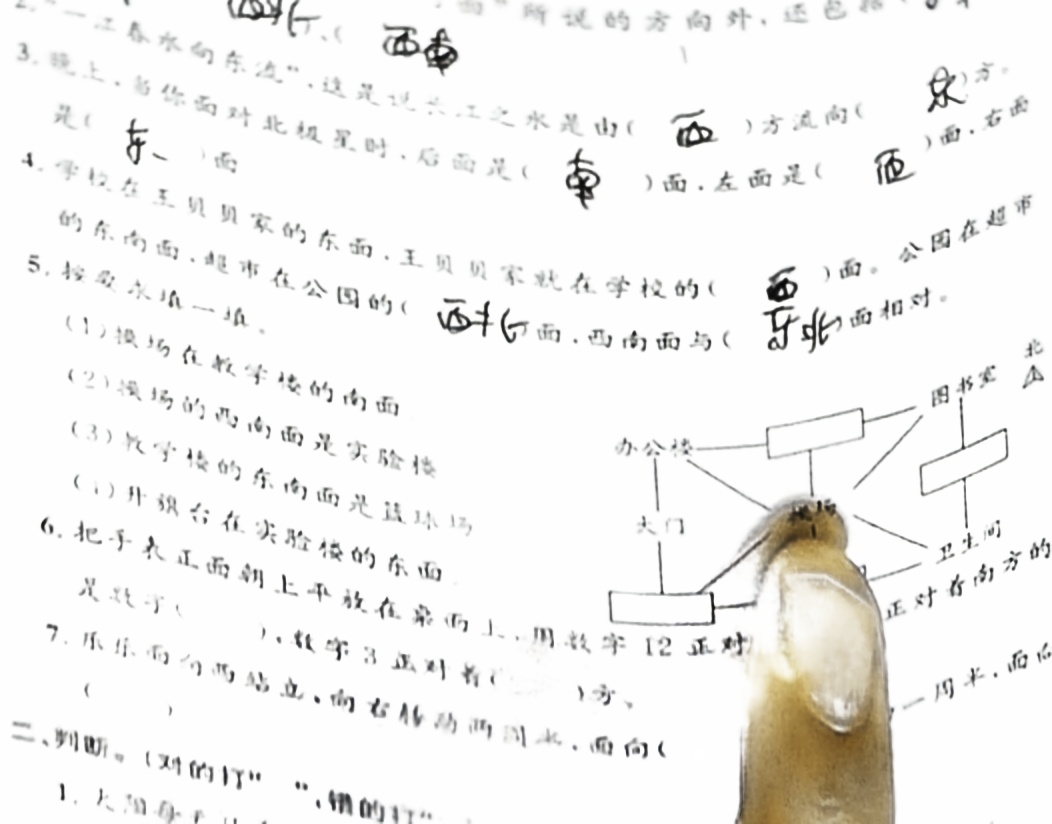 "所说的方向外，还包括
西南
2. "一江春水向东流"，这是说长江之水是由( 西 )方流向( 东 )方。
3. 晚上，当你面对北极星时，后面是( 南 )面，左面是( 西 )面，右面
是( 东 )面
4. 学校在王贝贝家的东面，王贝贝家就在学校的( 西 )面。公园在超市
的东南面，超市在公园的( 西北 )面，西南面与( 东北 )面相对。
5. 按要求填一填。
(1)操场在教学楼的南面
(2)操场的西南面是实验楼
(3)教学楼的东南面是篮球场
(4)升旗台在实验楼的东面
北
图书室
办公楼
操场
大门
卫生间
6. 把手表正面朝上平放在桌面上，用数字12正对 正对着南方的
是数字( )，数字3正对着( )方。
7. 乐乐面向西站立，向右转动两周半，面向( 一周半，面向
( )
二、判断。(对的打" "，错的打"
1. 太阳